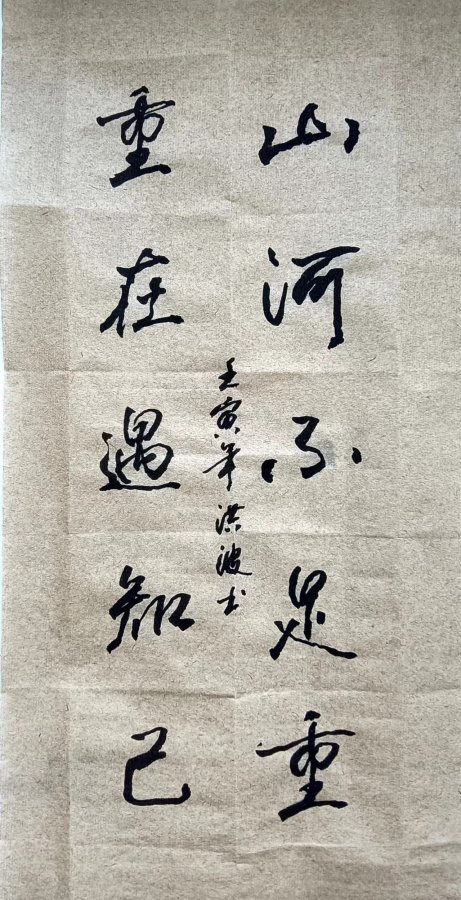 山河不足重
重在遇知己
壬寅年洪波书